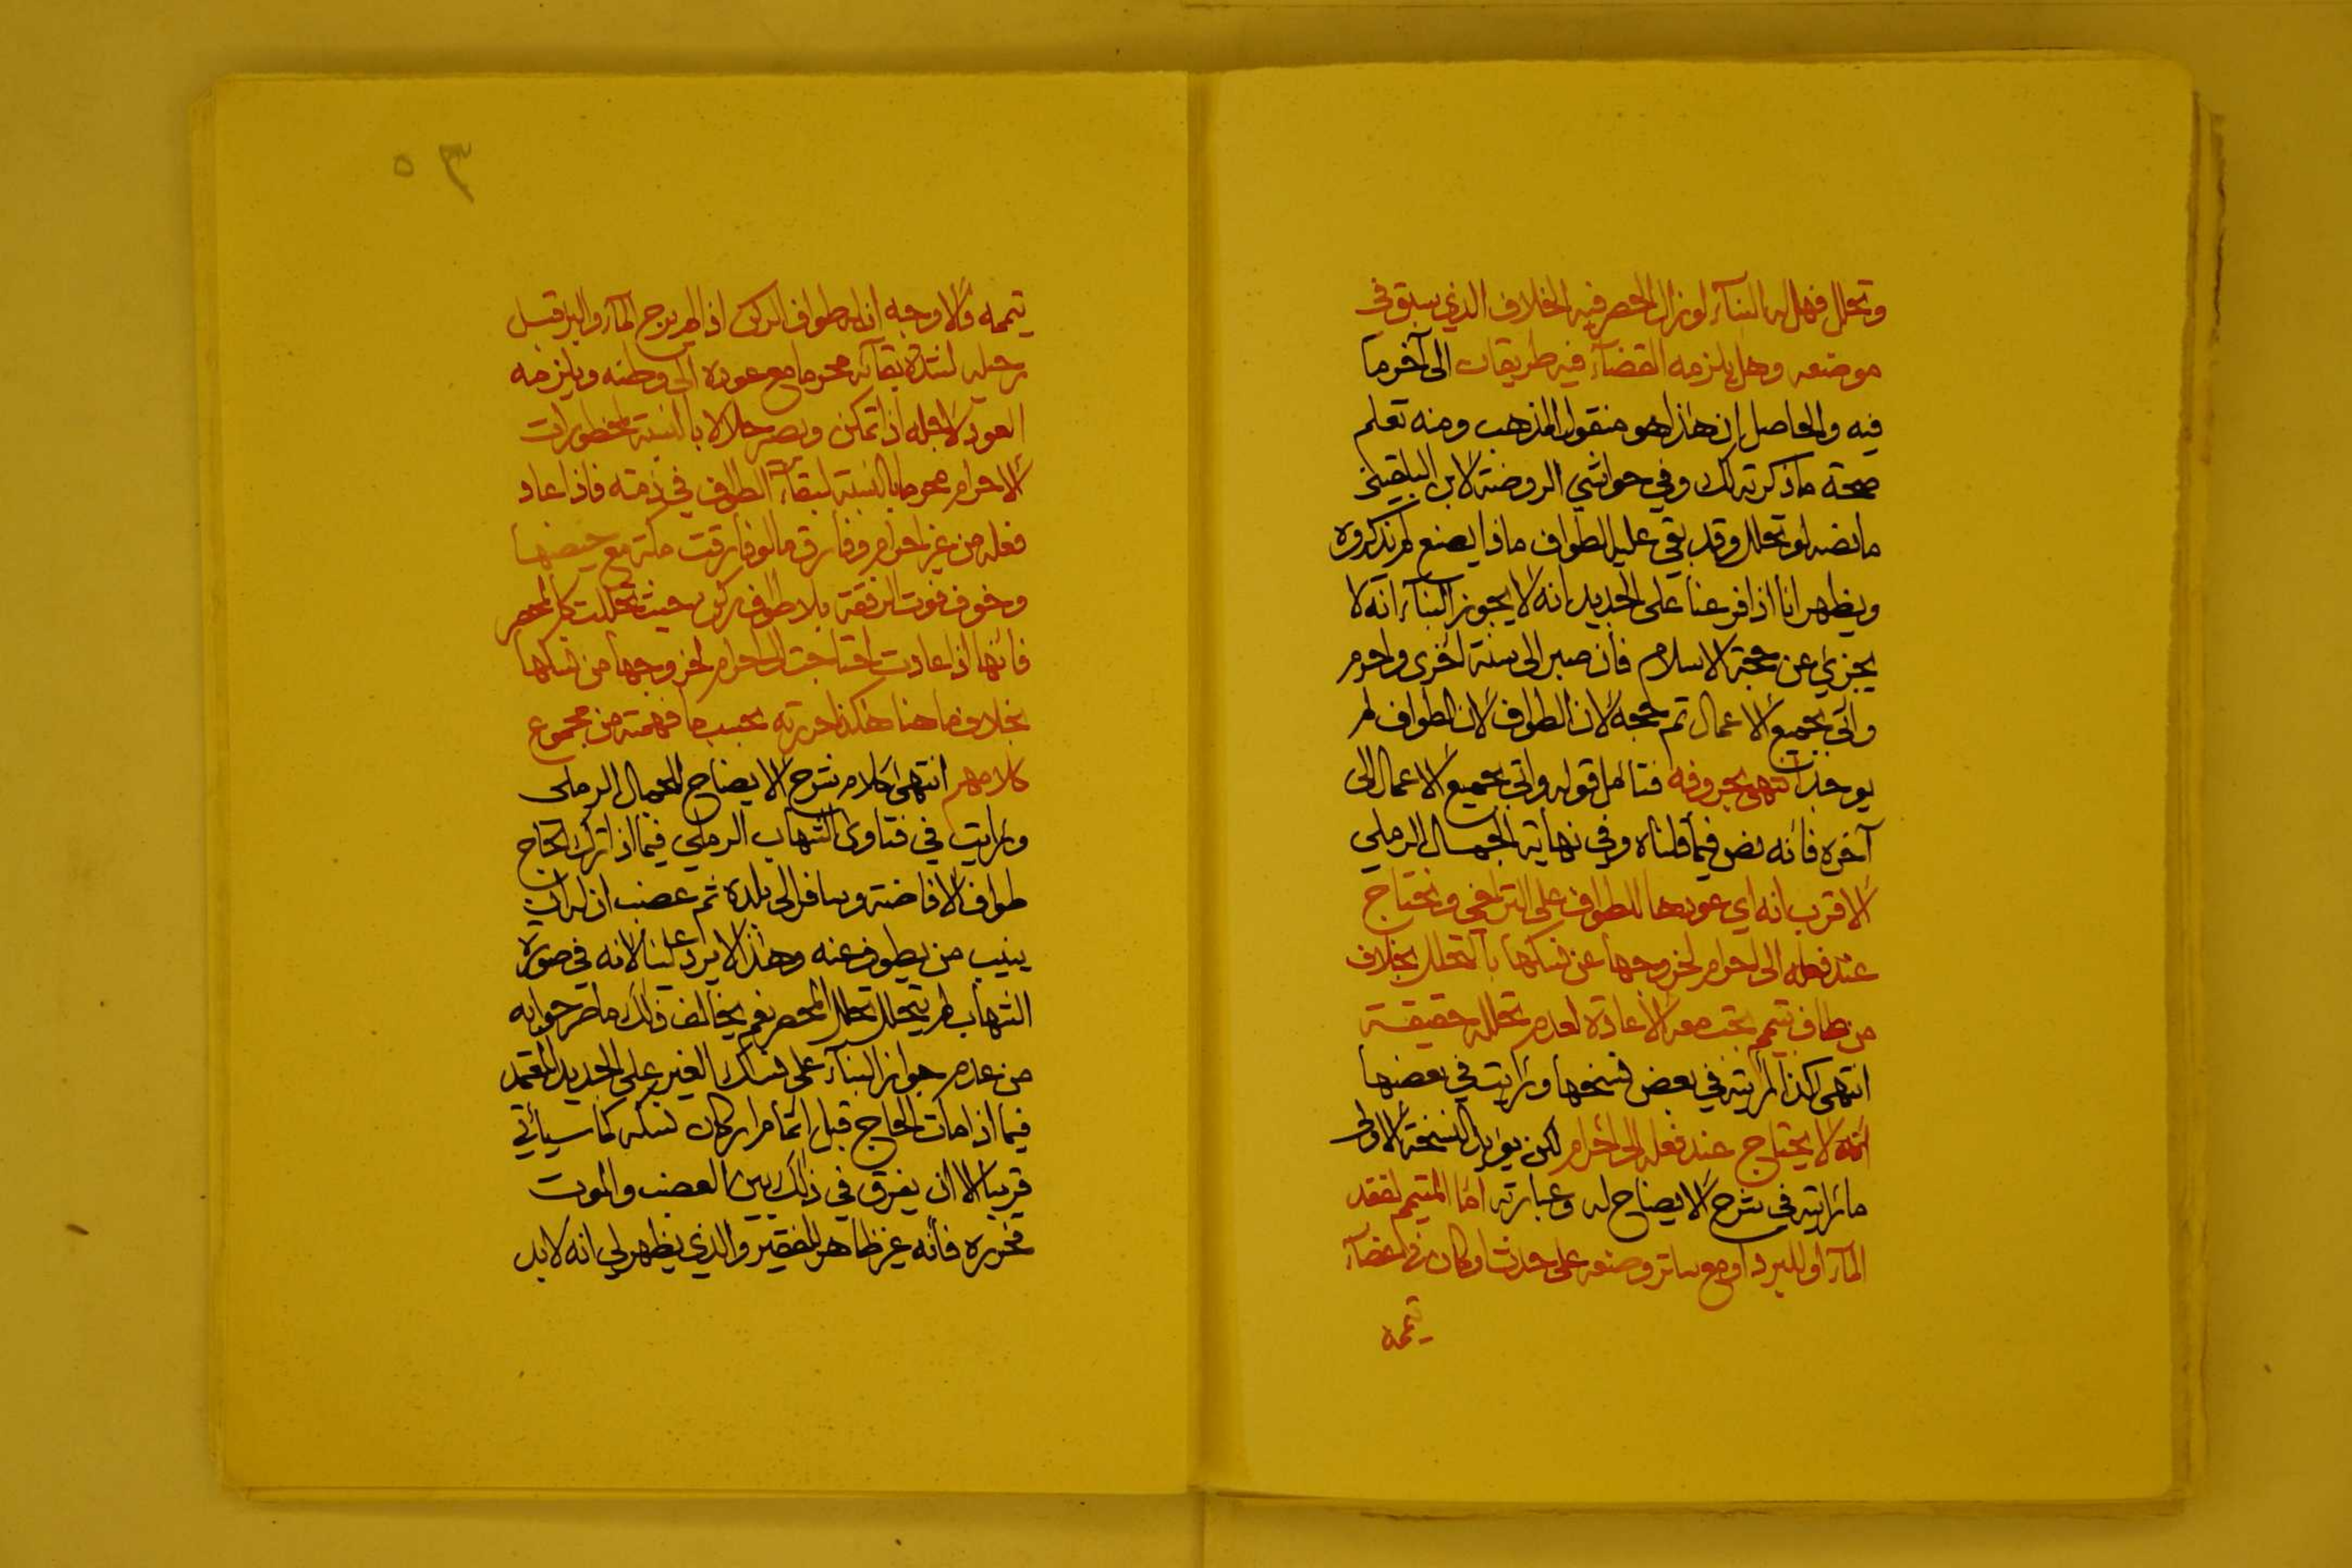 وتحلل فهل له البنآء لو زال الحصر فيه الخلاف الذي سبق في
موضعه وهل يلزمه القضآء فيه طريقان الى آخر ما
فيه والحاصل ان هذا هو منقول المذهب ومنه تعلم
صحة ما ذكرته لك وفي حواشي الروضة لابن البلقيني
ما نصه لو تحلل وقد بقي عليه الطواف ماذا يصنع لم يذكروه
ويظهر انا اذا فرعنا على الجديد انه لا يجوز البنآء انه لا
يجزئ عن حجة الاسلام فان صبر الى سنة اخرى واحرم
واتى بجميع الاعمال تم حجه لان الطواف لان الطواف لم
يوجد انتهى بحروفه فتامل قوله واتى بجميع الاعمال الى
آخره فانه نص فيما قلناه وفي نهاية الجمال الرملي
الاقرب انه اي عودها للطواف على التراخي وتحتاج
عند فعله الى احرام لخروجها عن نسكها بالتحلل بخلاف
من طاف بتيمم تجب معه الاعادة لعدم تحلله حقيقة
انتهى كذا رايته في بعض نسخها ورايت في بعضها
انه لا يحتاج عند فعله الى احرام لكن يؤيد النسخة الاولى
ما رايته في شرح الايضاح له وعبارته اما المتيمم لفقد
المآء او للبرد او مع ساتر وضعه على حدث او كان في اعضآء
تيممه
٣٥
تيممه فالاوجه ان له طواف الركن اذا لم يرج المآء والبرء قبل
رحيله لشدة بقآئه محرما مع عوده الى وطنه ويلزمه
العود لاجله اذا تمكن ويصير حلالا بالنسبة لمحظورات
الاحرام محرما بالنسبة لبقآء الطواف في ذمته فاذا عاد
فعله من غير احرام وفارق ما لو فارقت مكة مع حيضها
وخوف فوت الرفقة بلا طواف ركن حيث تحللت كالمحصر
فانها اذا عادت احتاجت الى احرام لخروجها من نسكها
بخلاف ما هنا هكذا حررته بحسب ما فهمته من مجموع
كلامهم انتهى كلام شرح الايضاح للجمال الرملي
ورايت في فتاوى الشهاب الرملي فيما اذا ترك الحاج
طواف الافاضة وسافر الى بلده ثم عضب ان له ان
ينيب من يطوف عنه وهذا لا يرد علينا لانه في صورة
الشهاب لم يتحلل تحلل المحصر نعم يخالف ذلك ما مر جوابه
من عدم جواز البنآء على نسك الغير على الجديد المعتمد
فيما اذا مات الحاج قبل اتمام اركان نسكه كما سياتي
قريبا الا ان يفرق في ذلك بين العضب والموت
فحرره فانه غير ظاهر للفقير والذي يظهر لي انه لا بد